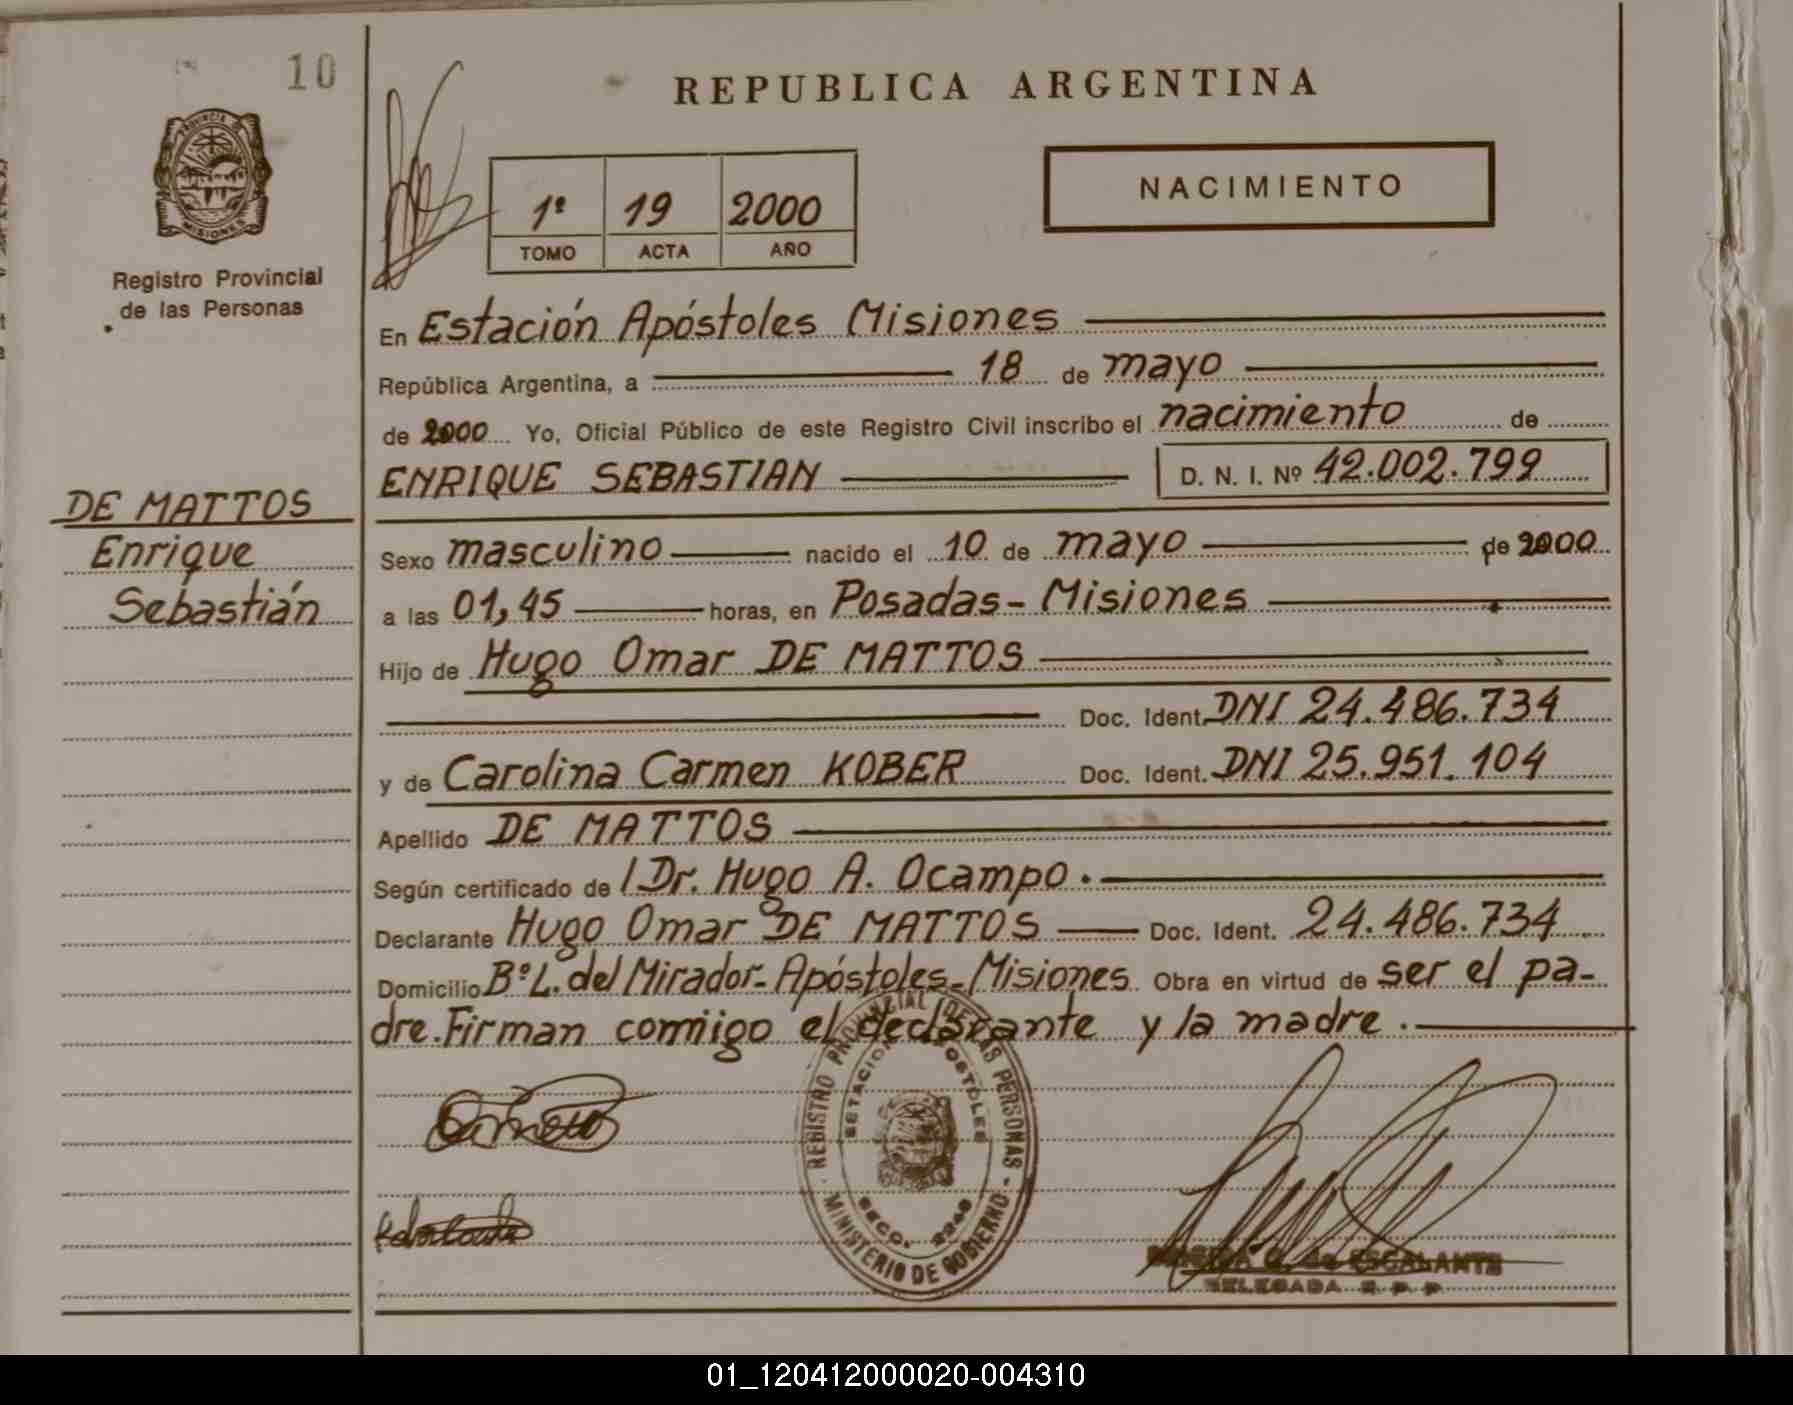 10
PROVINCIA DE
MISIONES
Registro Provincial
de las Personas
REPUBLICA ARGENTINA
1º 19 2000
TOMO ACTA AÑO
NACIMIENTO
En Estación Apóstoles Misiones
República Argentina, a 18 de mayo
de 2000 Yo, Oficial Público de este Registro Civil inscribo el nacimiento de
ENRIQUE SEBASTIAN D. N. I. Nº 42.002.799
DE MATTOS
Enrique
Sebastián
Sexo masculino nacido el 10 de mayo de 2000
a las 01,45 horas, en Posadas- Misiones
Hijo de Hugo Omar DE MATTOS
Doc. Ident. DNI 24.486.734
y de Carolina Carmen KOBER Doc. Ident. DNI 25.951.104
Apellido DE MATTOS
Según certificado de Dr. Hugo A. Ocampo.
Declarante Hugo Omar DE MATTOS Doc. Ident. 24.486.734
Domicilio Bº L. del Mirador- Apóstoles- Misiones. Obra en virtud de ser el pa-
dre. Firman comiigo el declarante y la madre.
REGISTRO PROVINCIAL DE LAS PERSONAS - MINISTERIO DE GOBIERNO -
ESTACION APOSTOLES
SECC.
de ESCALANTE
DELEGADA R. P. P.
01_120412000020-004310